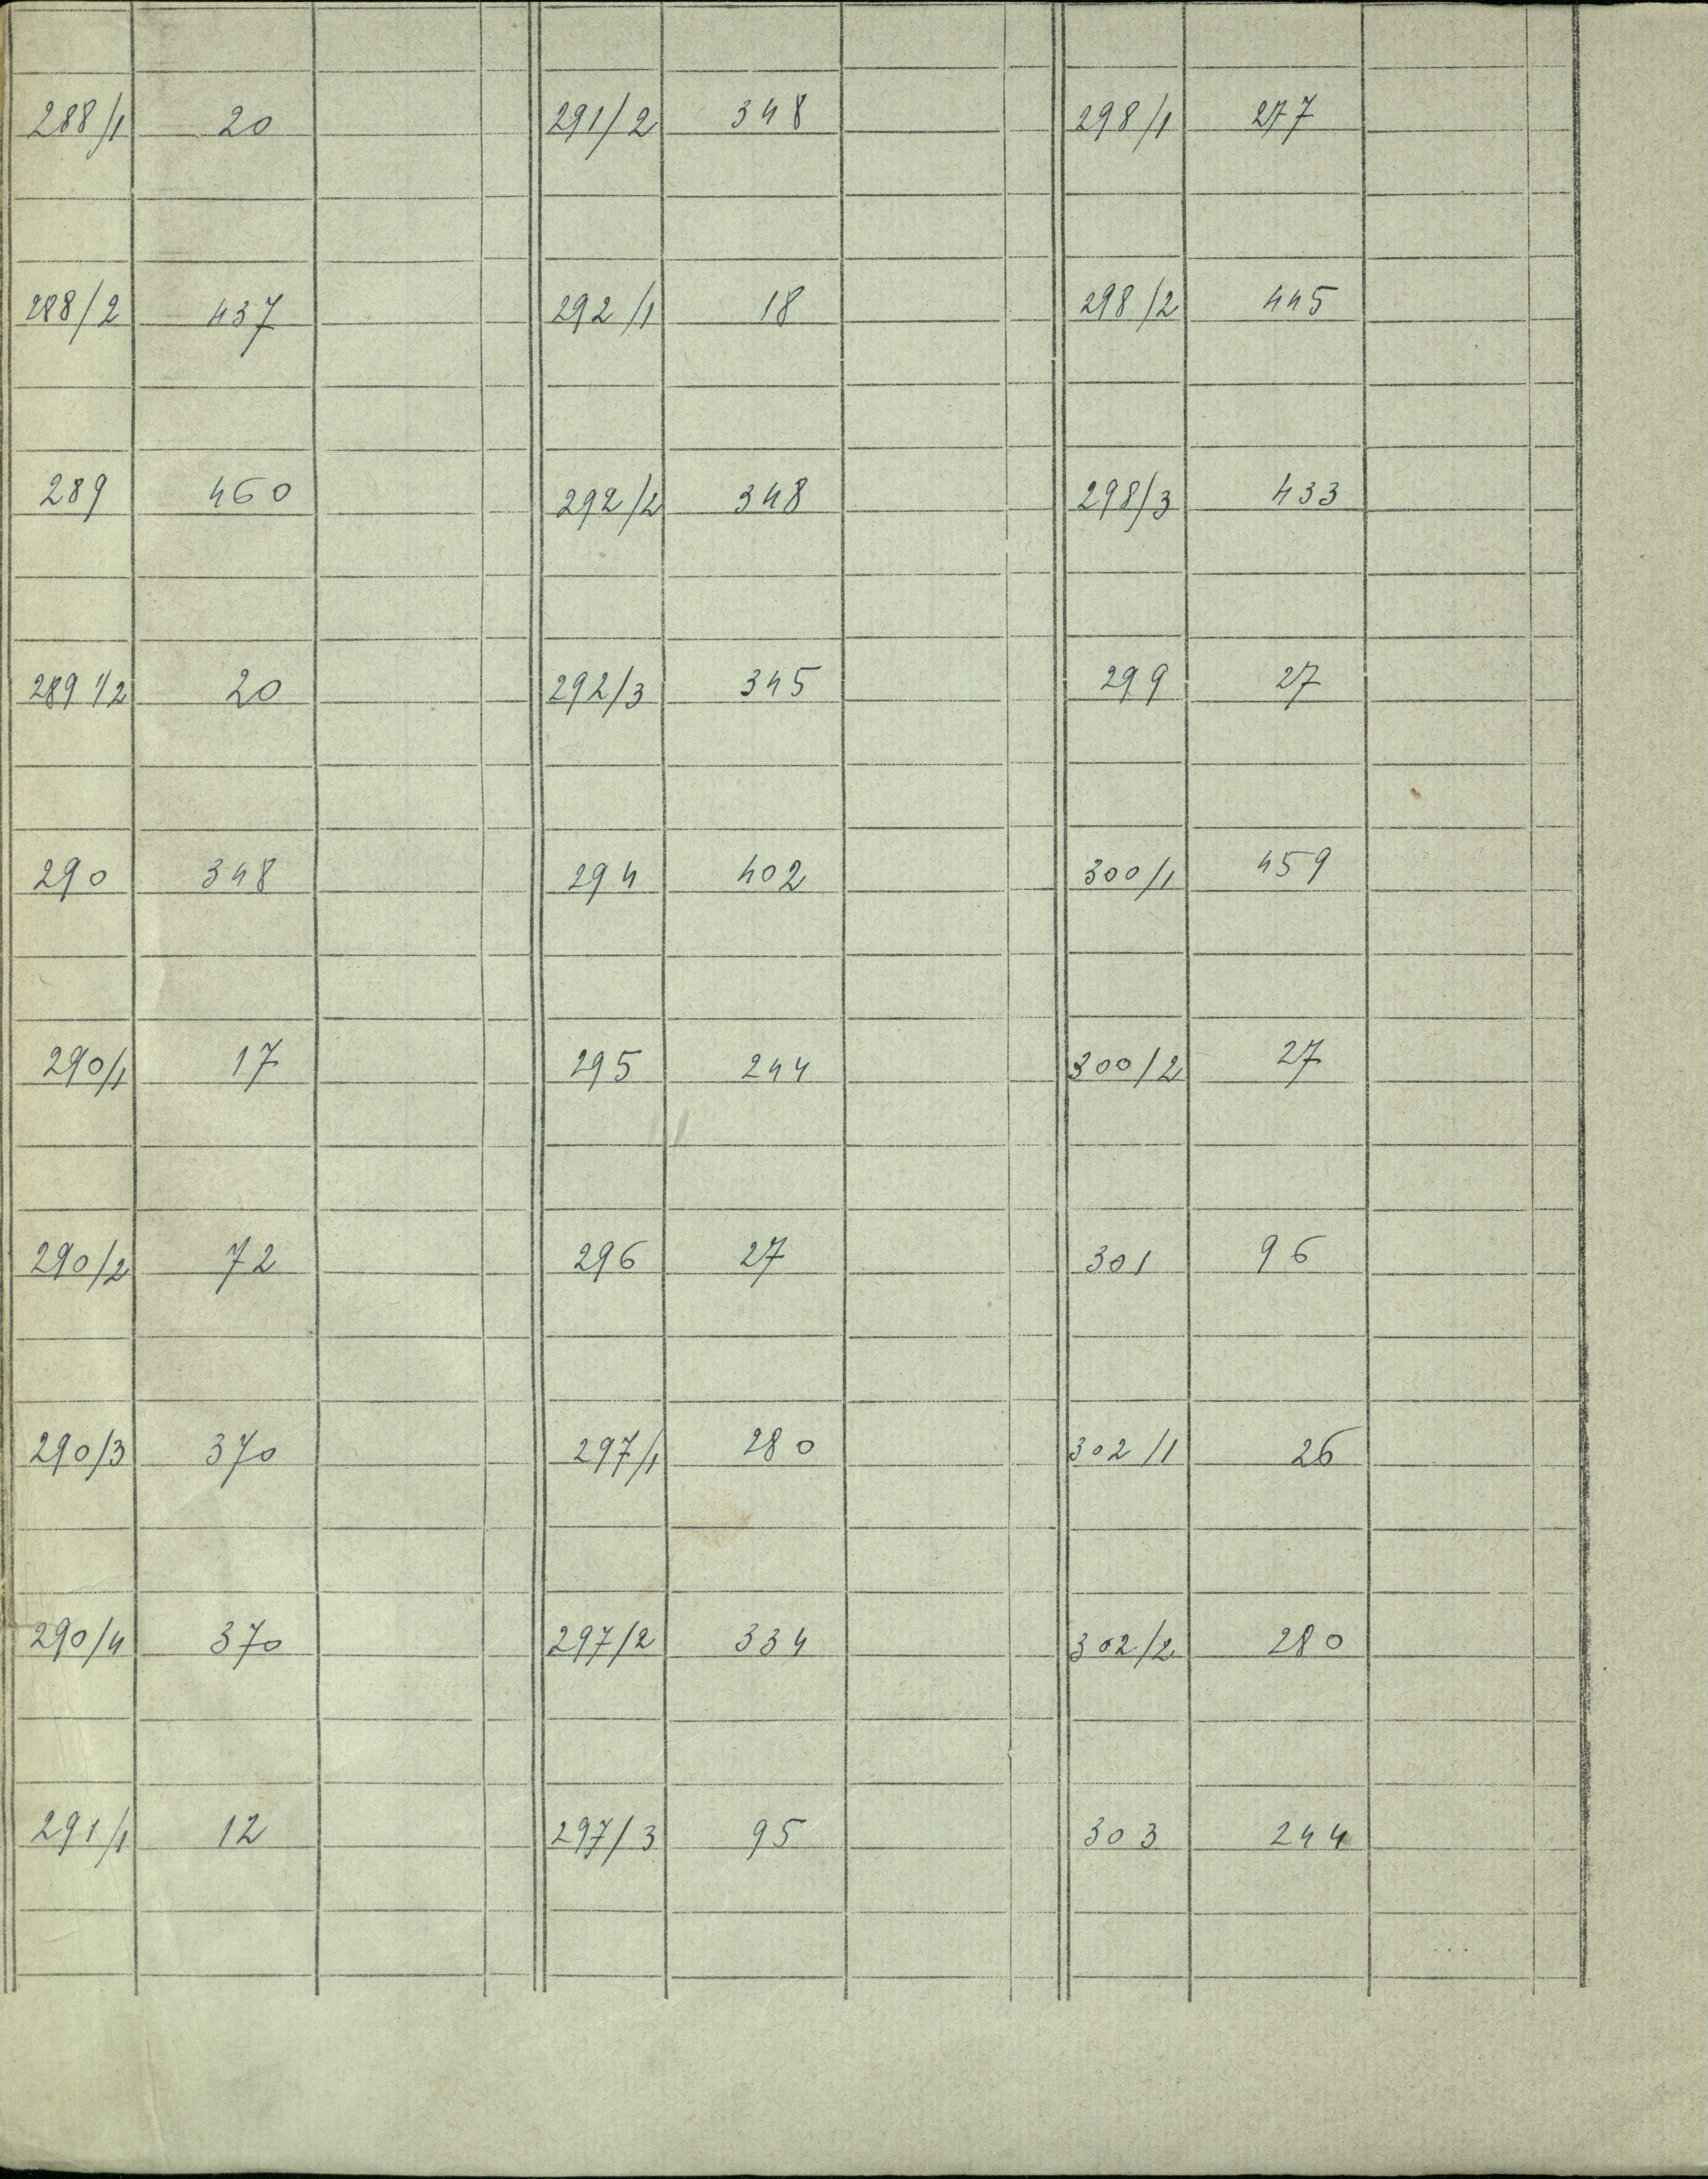 288/1 20
288/2 437
289 460
289 1/2 20
290 348
290/1 17
290/2 72
290/3 370
290/4 370
291/1 12
291/2 348
292/1 18
292/2 348
292/3 345
294 402
295 244
296 27
297/1 280
297/2 334
297/3 95
298/1 277
298/2 445
298/3 433
299 27
300/1 459
300/2 27
301 96
302/1 26
302/2 280
303 244